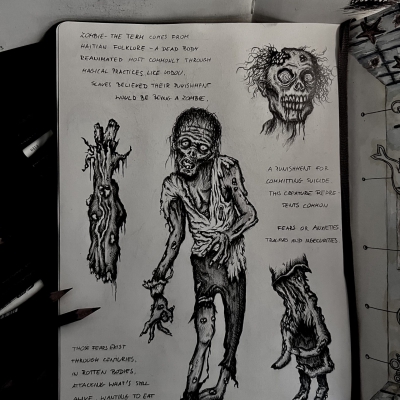 ZOMBIE - THE TERM COMES FROM
HAITIAN FOLKLORE - A DEAD BODY
REANIMATED MOST COMMONLY THROUGH
MAGICAL PRACTICES LIKE VODOU.
SLAVES BELIEVED THEIR PUNISHMENT
WOULD BE BEING A ZOMBIE,
A PUNISHMENT FOR
COMMITTING SUICIDE.
THIS CREATURE REPRE-
SENTS COMMON
FEARS OR ANXIETIES
TRAUMAS AND INSECURITIES
THOSE FEARS EXIST
THROUGH CENTURIES,
IN ROTTEN BODIES,
ATTACKING WHAT'S STILL
ALIVE, WANTING TO EAT